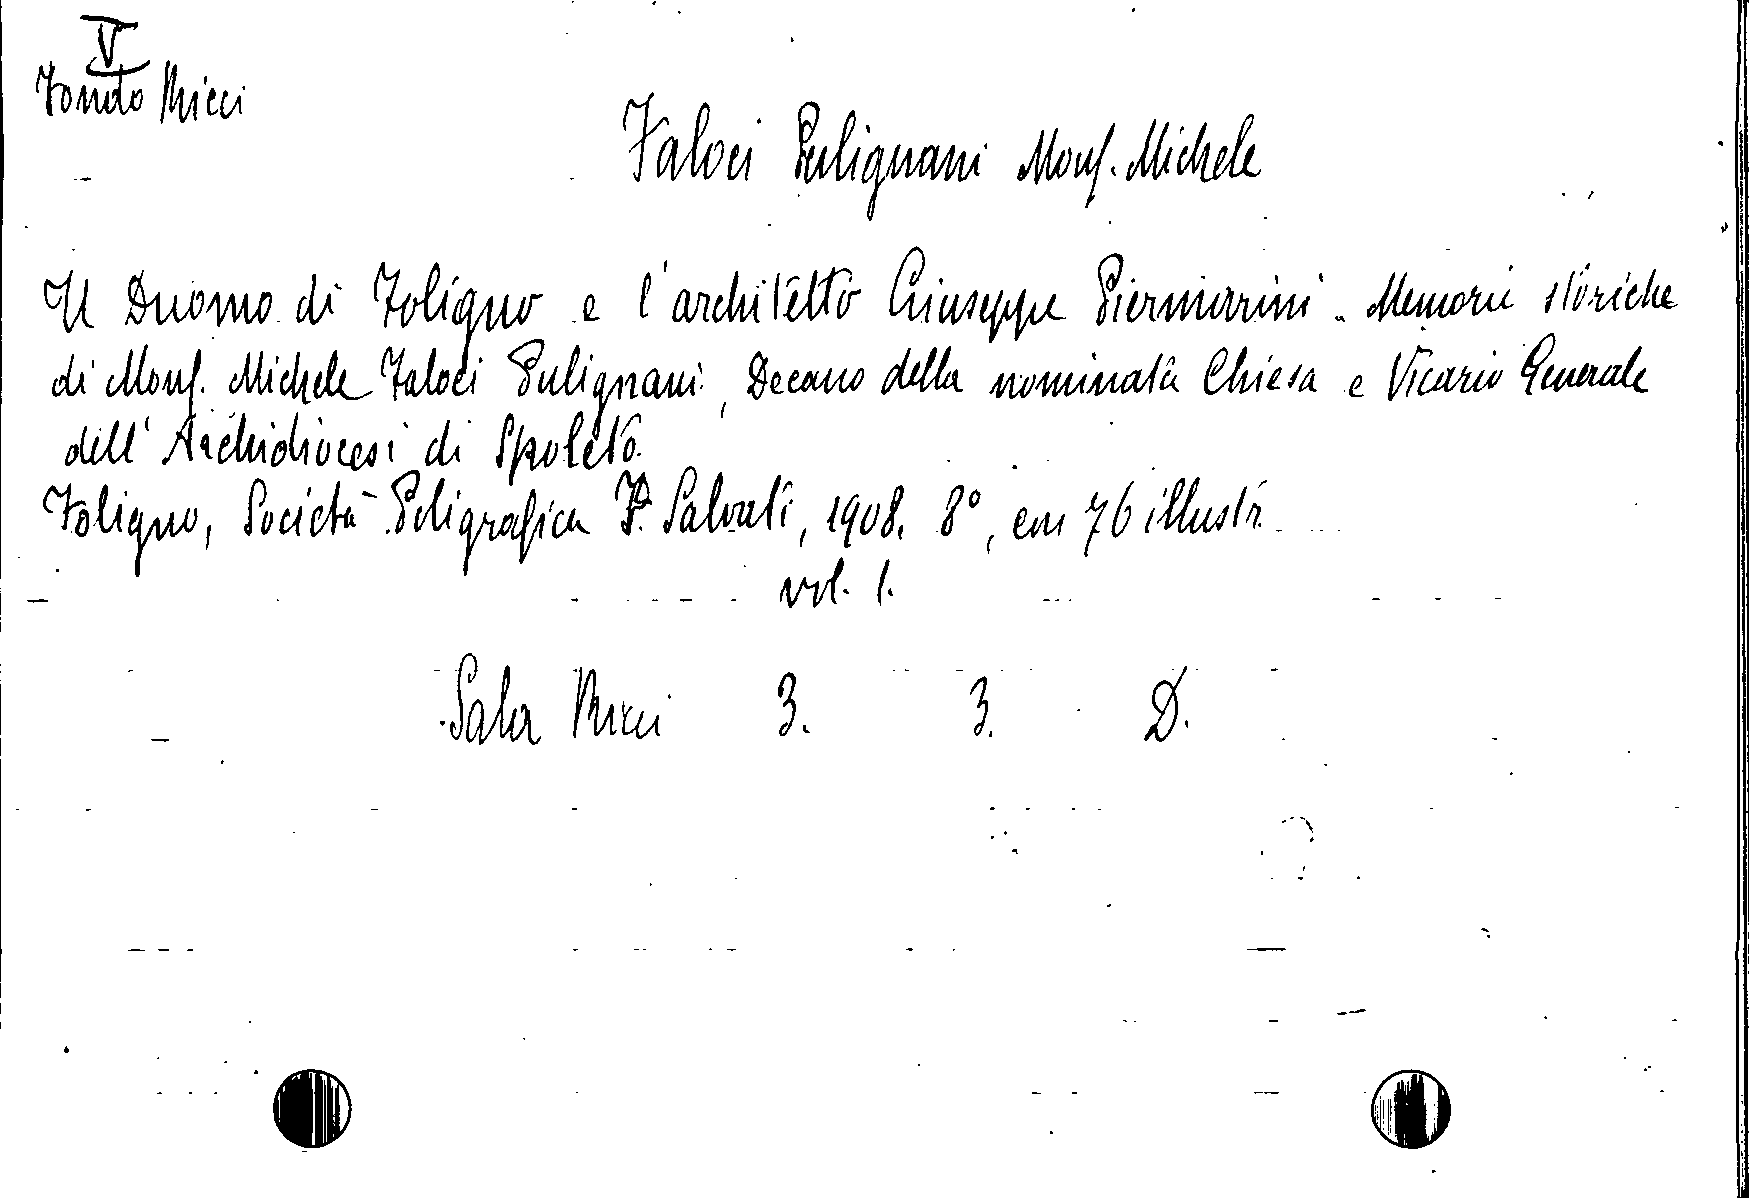 V
Fondo Ricci
Faloci Pulignani Mons. Michele
Il Duomo di Foligno e l'architetto Giuseppe Piermarini. Memorie storiche
di Mons. Michele Faloci Pulignani, Decano della nominata Chiesa e Vicario Generale
dell'Archidiocesi di Spoleto.
Foligno, Società Poligrafica F. Salvati, 1908. 8°, con 76 illustr.
vol. 1.
Sala Ricci 3. 3. D.